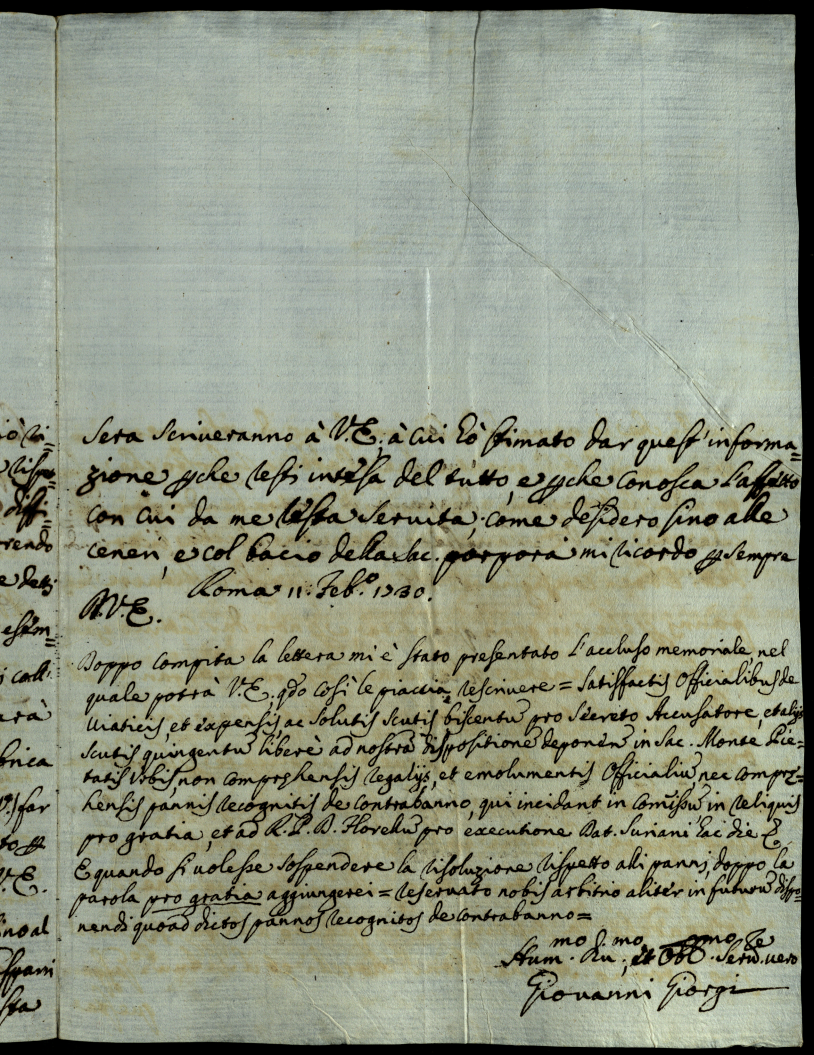 sera scriveranno à V.E., à cui hò stimato dar quest'informa=
zione pche resti intesa del tutto, e pche conosca l'affetto
con cui da me resta servita, come desidero sino alle
ceneri, e col bacio della Sac. porpora mi ricordo p sempre
Roma 11. Feb.º 1730.
D.V.E.
Doppo compita la lettera mi è stato presentato l'accluso memoriale, nel
quale potrà V.E., qdo così le piaccia, rescrivere = Satisfactis Officialibus de
Viaticis, et expensis ac solutis scutis biscentū pro secreto Accusatore, et alijs
scutis quingentū liberè ad nostrā dispositionē deponēn in Sac. Monte Pie=
tatis Urbis, non comprehensis regalijs, et emolumentis Officialiū nec compre=
hensis pannis recognitis de contrabanno, qui incidant in comissū in reliquis
pro gratia, et ad R.P.D. Florellū pro executione Dat. Suriani hac die &
E quando si volesse sospendere la risoluzione rispetto alli panni, doppo la
parola pro gratia aggiungerei = reservato nobis arbitrio aliter in futurū dispo=
nendi quoad dictos pannos recognitos de contrabanno =
Hum.mo Di.mo, et Obl.mo Serv.re vero
Giovanni Giorgi
ò
rendo
e detti
arà
brica
far
to p
V.E.
sino al
sta